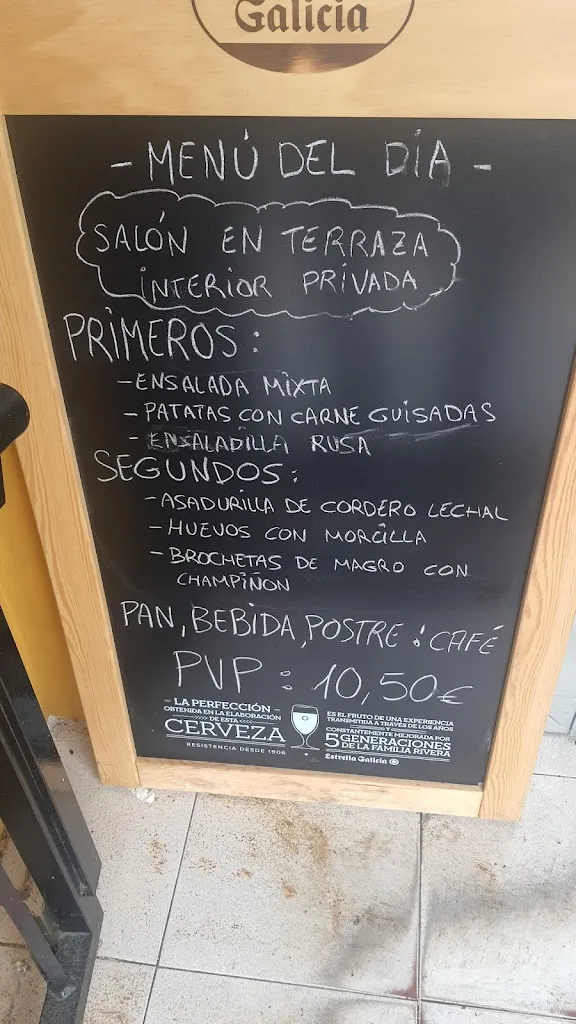 Galicia
- MENÚ DEL DÍA -
SALÓN EN TERRAZA
INTERIOR PRIVADA
PRIMEROS:
- ENSALADA MIXTA
- PATATAS CON CARNE GUISADAS
- ENSALADILLA RUSA
SEGUNDOS:
- ASADURILLA DE CORDERO LECHAL
- HUEVOS CON MORCILLA
- BROCHETAS DE MAGRO CON
CHAMPIÑON
PAN, BEBIDA, POSTRE : CAFÉ
PVP : 10,50€
- LA PERFECCIÓN -
OBTENIDA EN LA ELABORACIÓN
DE ESTA
CERVEZA
RESISTENCIA DESDE 1906
ES EL FRUTO DE UNA EXPERIENCIA
TRANSMITIDA A TRAVÉS DE LOS AÑOS
Y
CONSTANTEMENTE MEJORADA POR
5 GENERACIONES
DE LA FAMILIA RIVERA
Estrella Galicia